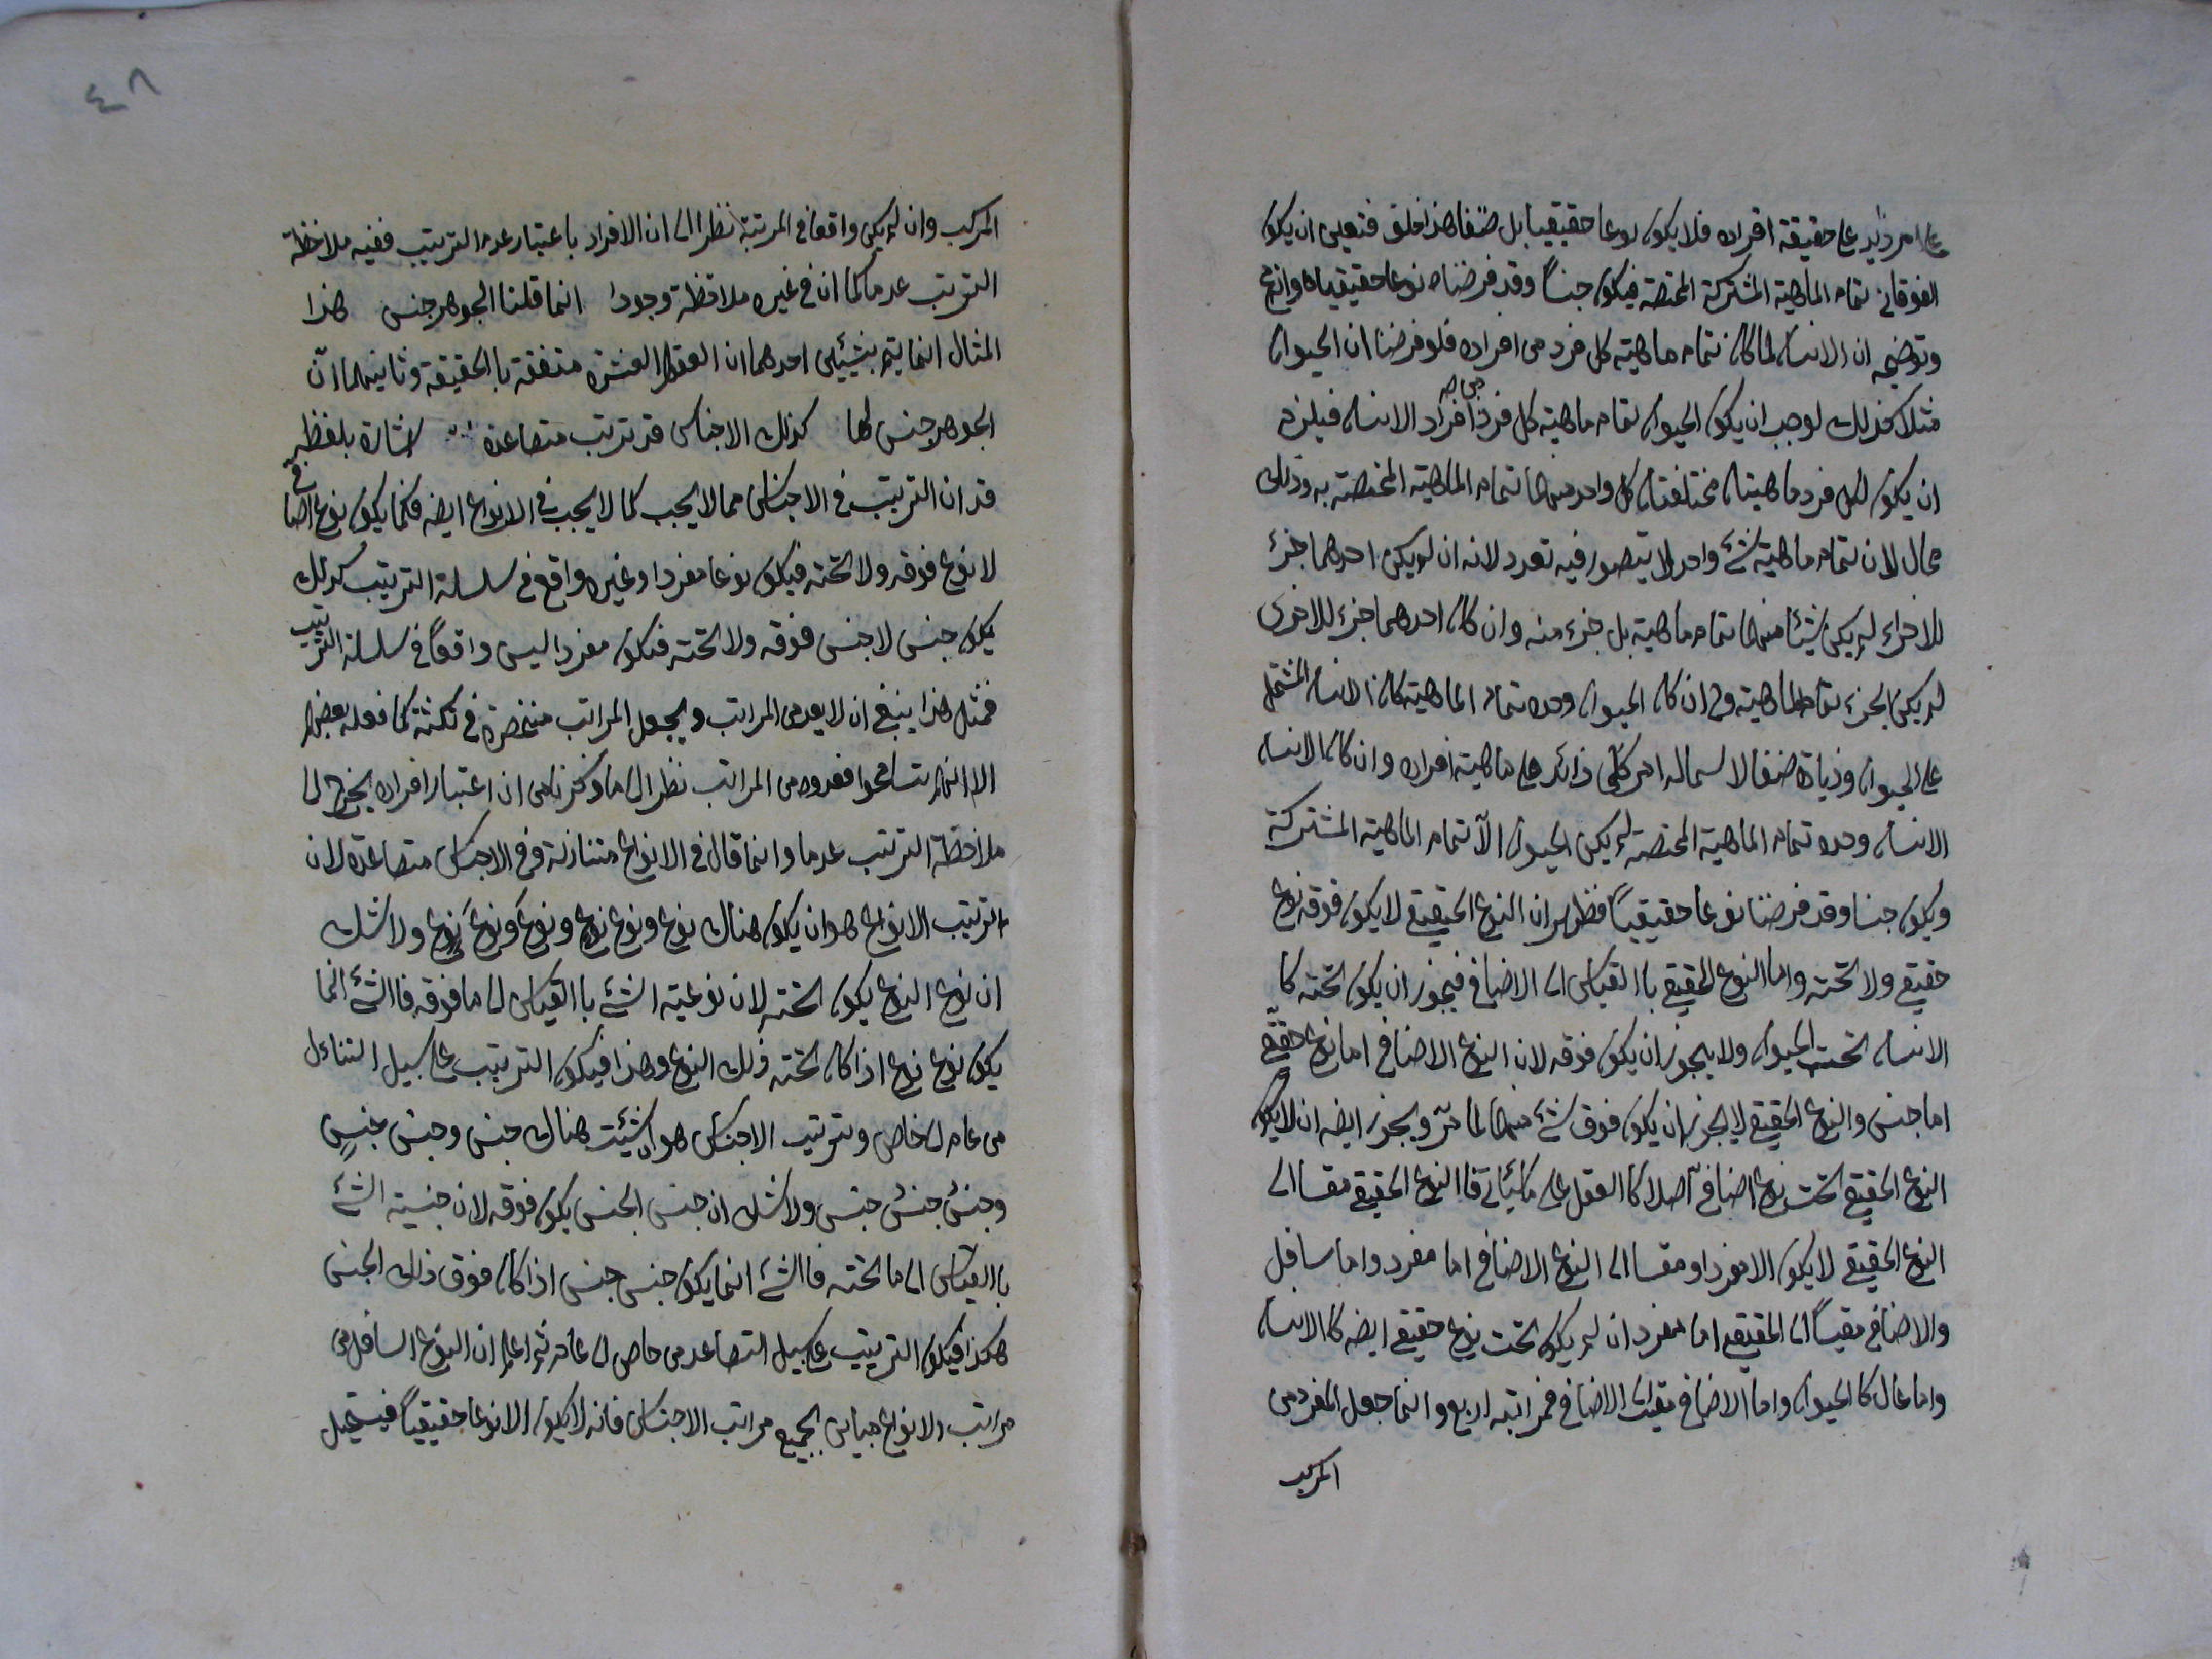 على امر زايد على حقيقة افراده فلا يكون نوعا حقيقيا بل صنفا هذا خلف فتعين ان يكون
الفوقاني تمام الماهية المشتركة المختصة فيكون جنسا وقد فرضناه نوعا حقيقيا
وتوضيحه ان الانسان لما كان تمام ماهية كل فرد من افراده فلو فرضنا ان الحيوان
مثلا كذلك لوجب ان يكون الحيوان تمام ماهية كل فرد من افراد الانسان فيلزم
ان يكون لكل فرد ماهيتان مختلفتان كل واحد منهما تمام الماهية المختصة به وذلك
محال لان تمام ماهية شئ واحد لا يتصور فيه تعدد لانه ان لم يكن احدهما جزء
للاخراء لم يكن شيئا منهما تمام ماهية بل جزء منه وان كان احدهما جزء للاخرى
لم يكن الجزء تمام الماهية وح ان كان الحيوان وحده تمام الماهية كان الانسان المشتمل
على الحيوان وزيادة صنفا لاشتماله امر كلي زائد على ماهية افراده وان كان الانسان
الانسان وحده تمام الماهية المختصة لم يكن الحيوان الا تمام الماهية المشتركة
ويكون جنسا وقد فرضنا نوعا حقيقيا فظهر ان النوع الحقيقي لا يكون فوقه نوع
حقيقي ولا تحته واما النوع الحقيقي باالقياس الى الاضافي فيجوز ان يكون تحته كا
الانسان تحت الحيوان ولا يجوز ان يكون فوقه لان النوع الاضافي اما نوع حقيقي
اما جنس والنوع الحقيقي لا يجوز ان يكون فوق شئ منهما لما مر ويجوز ايضه ان لا يكون
النوع الحقيقي تحت نوع اضافي اصلا كا العقل على فاالنوع الحقيقي مقسا الى
النوع الحقيقي لا يكون الا مفردا ومقسا الى النوع الاضافي اما مفرد واما سافل
والاضافي مقيسا الى الحقيقي اما مفرد ان لم يكن تحت نوع حقيقي ايضه كا الانسان
واما عال كا الحيوان واما الاضافي مقيسا الى الاضافي فمراتبه اربع وانما جعل المفرد من
المركب
٤٨
المركب وان لم يكن واقعا في المرتبة نظرا الى ان الافراد باعتبار عدم الترتيب ففيه ملاحظة
الترتيب عدما كما ان في غيره ملاحظة وجودا انما قلنا الجوهر جنس هذا
المثال انما يتم بشيئين احدهما ان العقول العشرة متفقة باالحقيقة وثانيهما ان
الجوهر جنس لها كذلك الاجناس قد تترتب متصاعدة اشارة بلفظ
قد ان الترتيب في الاجناس مما لا يجب كما لا يجب في الانواع ايضه فكما يكون نوع اضافي
لا نوع فوقه ولا تحته فيكون نوعا مفردا وغير واقع في سلسلة الترتيب كذلك
يكون جنس لا جنس فوقه ولا تحته فيكون مفردا ليس واقعا في سلسلة الترتيب
فمثل هذا ينبغي ان لا يعد من المراتب ويجعل المراتب منحصرة في ثلثة كما فعله بعضهم
الا انهم تسامحوا فعدوه من المراتب نظرا الى ما ذكرنا من ان اعتبار افراده يحوج الى
ملاحظة الترتيب عدما وانما قال في الانواع متنازلة وفي الاجناس متصاعدة لان
ترتيب الانواع هو ان يكون هناك نوع ونوع نوع ونوع نوع نوع ولا شك
ان نوع النوع يكون تحته لان نوعية الشئ باالقياس الى ما فوقه فاالشئ انما
يكون نوع نوع اذا كان تحته ذلك النوع وهذا فيكون الترتيب على سبيل التنازل
من عام الى خاص وترتيب الاجناس هو هناك جنس وجنس جنس
وجنس جنس جنس ولا شك ان جنس الجنس يكون فوقه لان جنسية الشئ
باالقياس الى ما تحته فاالشئ انما يكون جنس جنس اذا كان فوق ذلك الجنس
هكذا فيكون الترتيب على سبيل التصاعد من خاص الى عام ثم اعلم ان النوع السافل من
مراتب الانواع مباين لجميع مراتب الاجناس فانه لا يكون الا نوعا حقيقيا فيستحيل